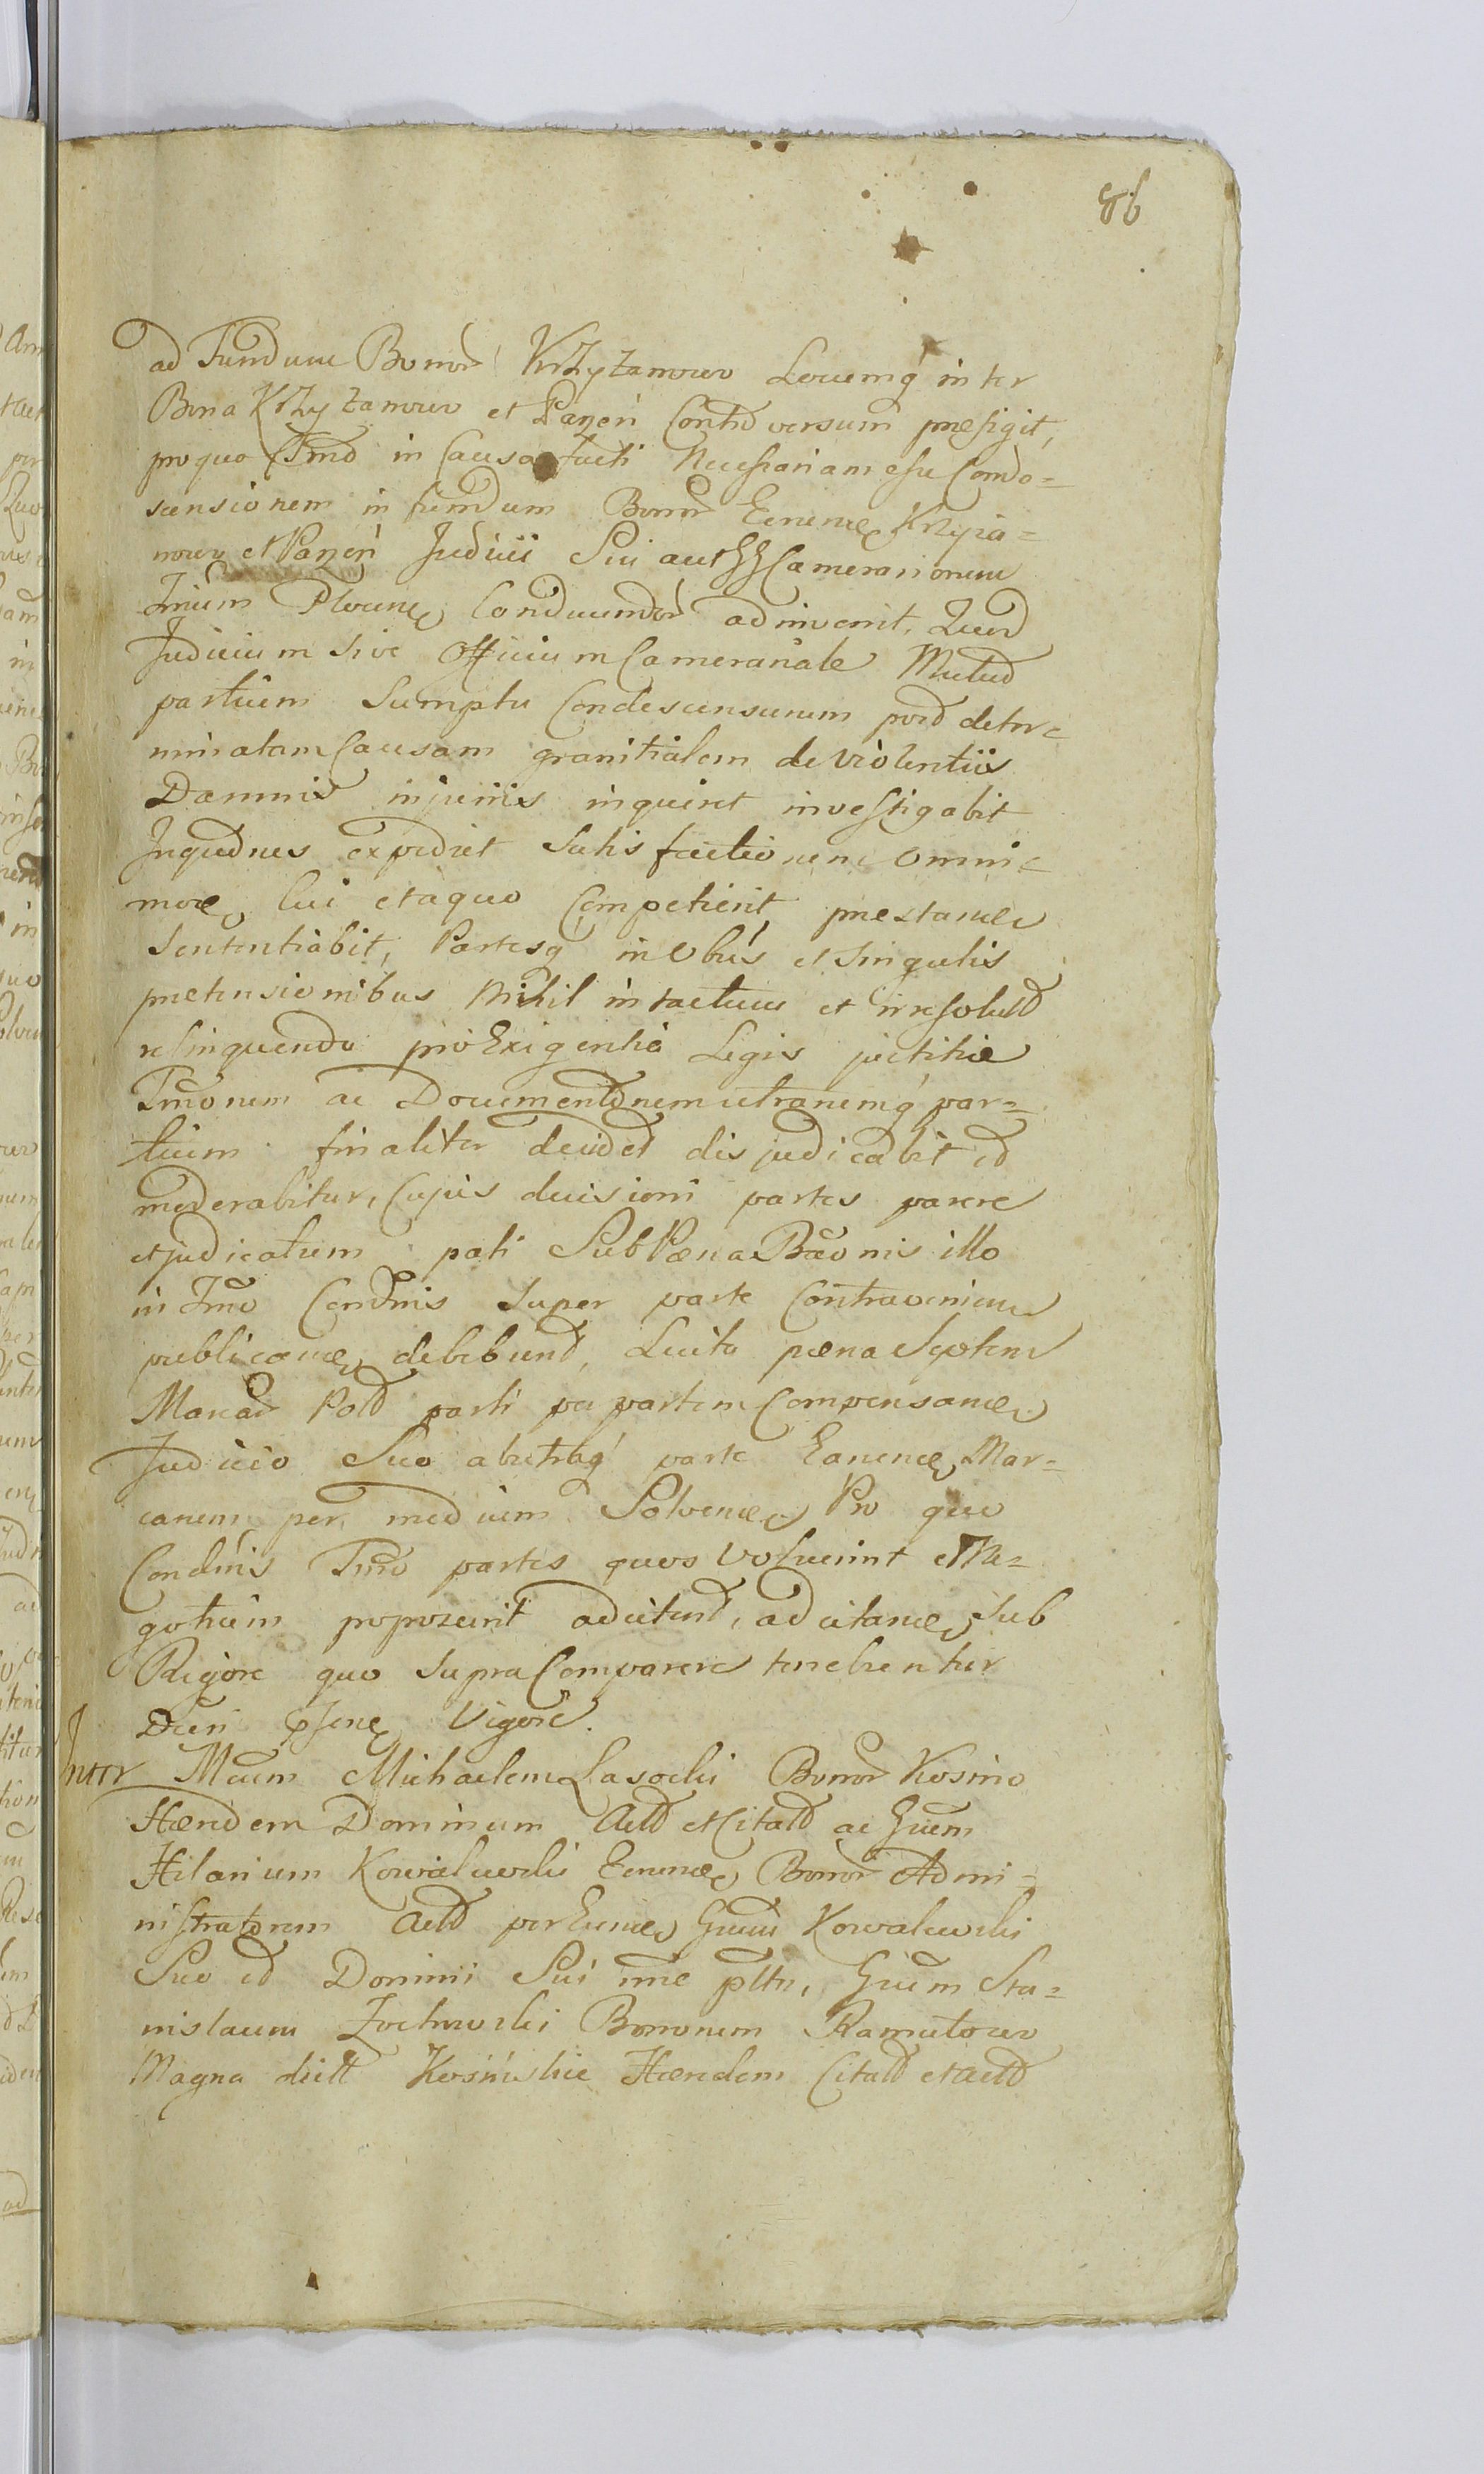 86
ad Fundum Bonor Krzyżanowo Locumq inter
Bona Krzyżanowo et Pągen Contd versum præfigit,
pro quo Tmd in Causa facti Necessariam esse Conde=
scensionem in fundum Bonor Eorunde Krzyża=
nowo et Pągen Judicii Sui aut Camerariorum
Trium Plocen Conducendor adinvenit, Quod
Judicium sive Officium Camerariale Mutuo
partium Sumptu Condescensurum post deter=
minatam Causam granitialem de violentiis
Damnis injuriis inquiret investigabit
Inqudnes expediet Satisfactionem omni=
modæ, Cui et a quo Competierit præstandæ
Sententiabit, Partesq in Obus et Singulis
prætensionibus Nihil intactum et irresolutd
relinquendo pro Exigentia Legis justitiæ
Tmonem ac Documentdnem utranemq par=
tium finaliter decidet disjudicabit et
moderabitur, Cujus decisioni partes parere
et judicatum pati Sub Pæna Bæonis illo
in Tmo Condnis Super parte Contravenien
publicandæ debebunt, Luito pæna Septem
Marcar Pold parti per partem Compensandæ
Judicio Suo ab utraq parte Earundæ Mar=
carum per medium Solvendæ Pro quo
Condnis Tmo partes quos voluerint et Ne=
gotium poposcerit adcitent, ad citandæ Sub
Rigore quo Supra Comparere tenebuntur
Dcri psent Vigore.
Inter Mcum Michaelem Lasocki Bonor Kosino
Hæredem Dominum Actd et Citatd ac Gnem
Hilarium Kowalewski Eorunde Bonor Admi=
nistratorem Actd per Eunde Gnum Kowalewski
Suo et Domini Sui nne pltm, Gnum Sta=
nislaum Zochowski Bonorum Ramutowo
Magna dictt Kosińskie Hæredem Citatd et Actd